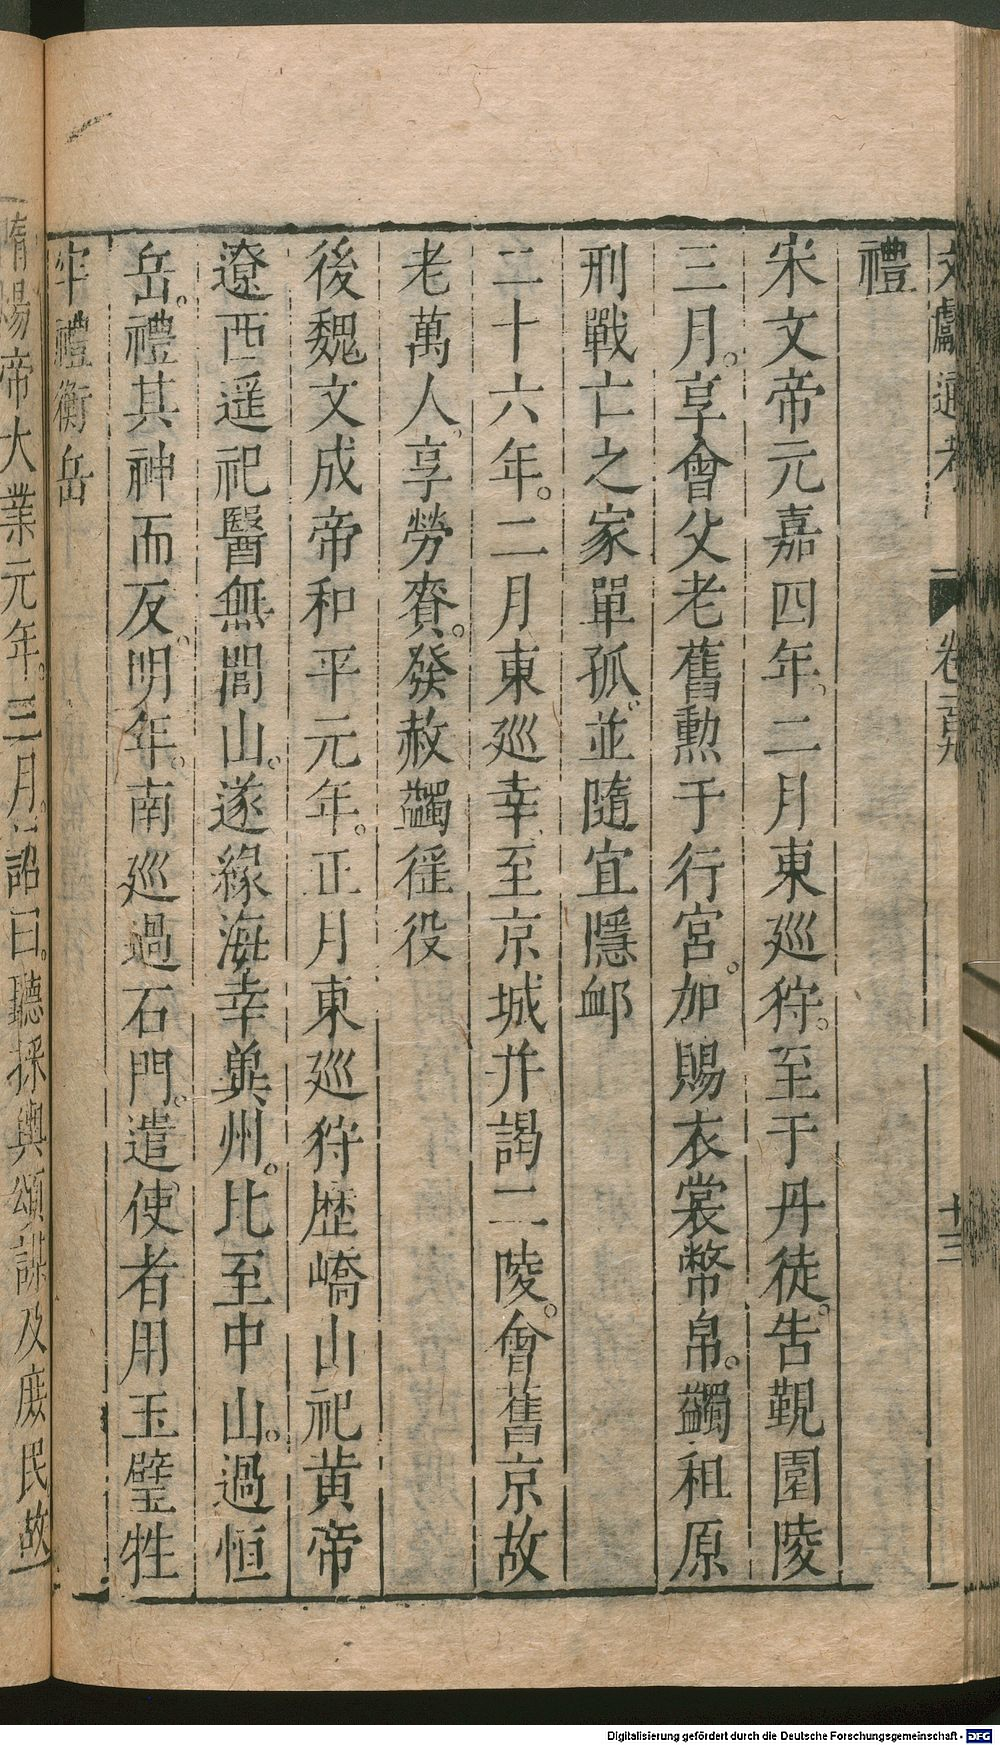 文獻通考 卷一百九 十三
禮
宋文帝元嘉四年。二月東廵狩。至于丹徒。告覲園陵
三月。享會父老舊勲于行宮。加賜衣裳幣帛。蠲租原
刑戰亡之家單孤。並隨宜隱䘏
二十六年。二月東廵幸。至京城并謁二陵。會舊京故
老萬人。享勞賚。發赦蠲徭役
後魏文成帝和平元年。正月東廵狩歷嶠山祀黄帝
遼西遥祀醫無閭山。遂緣海幸兾州。比至中山。過恒
岳。禮其神而反。明年。南廵過石門。遣使者用玉璧牲
牢禮衡岳
隋煬帝大業元年。三月。詔曰。聽採輿頌謀及庶民故
Digitalisierung gefördert durch die Deutsche Forschungsgemeinschaft - DFG